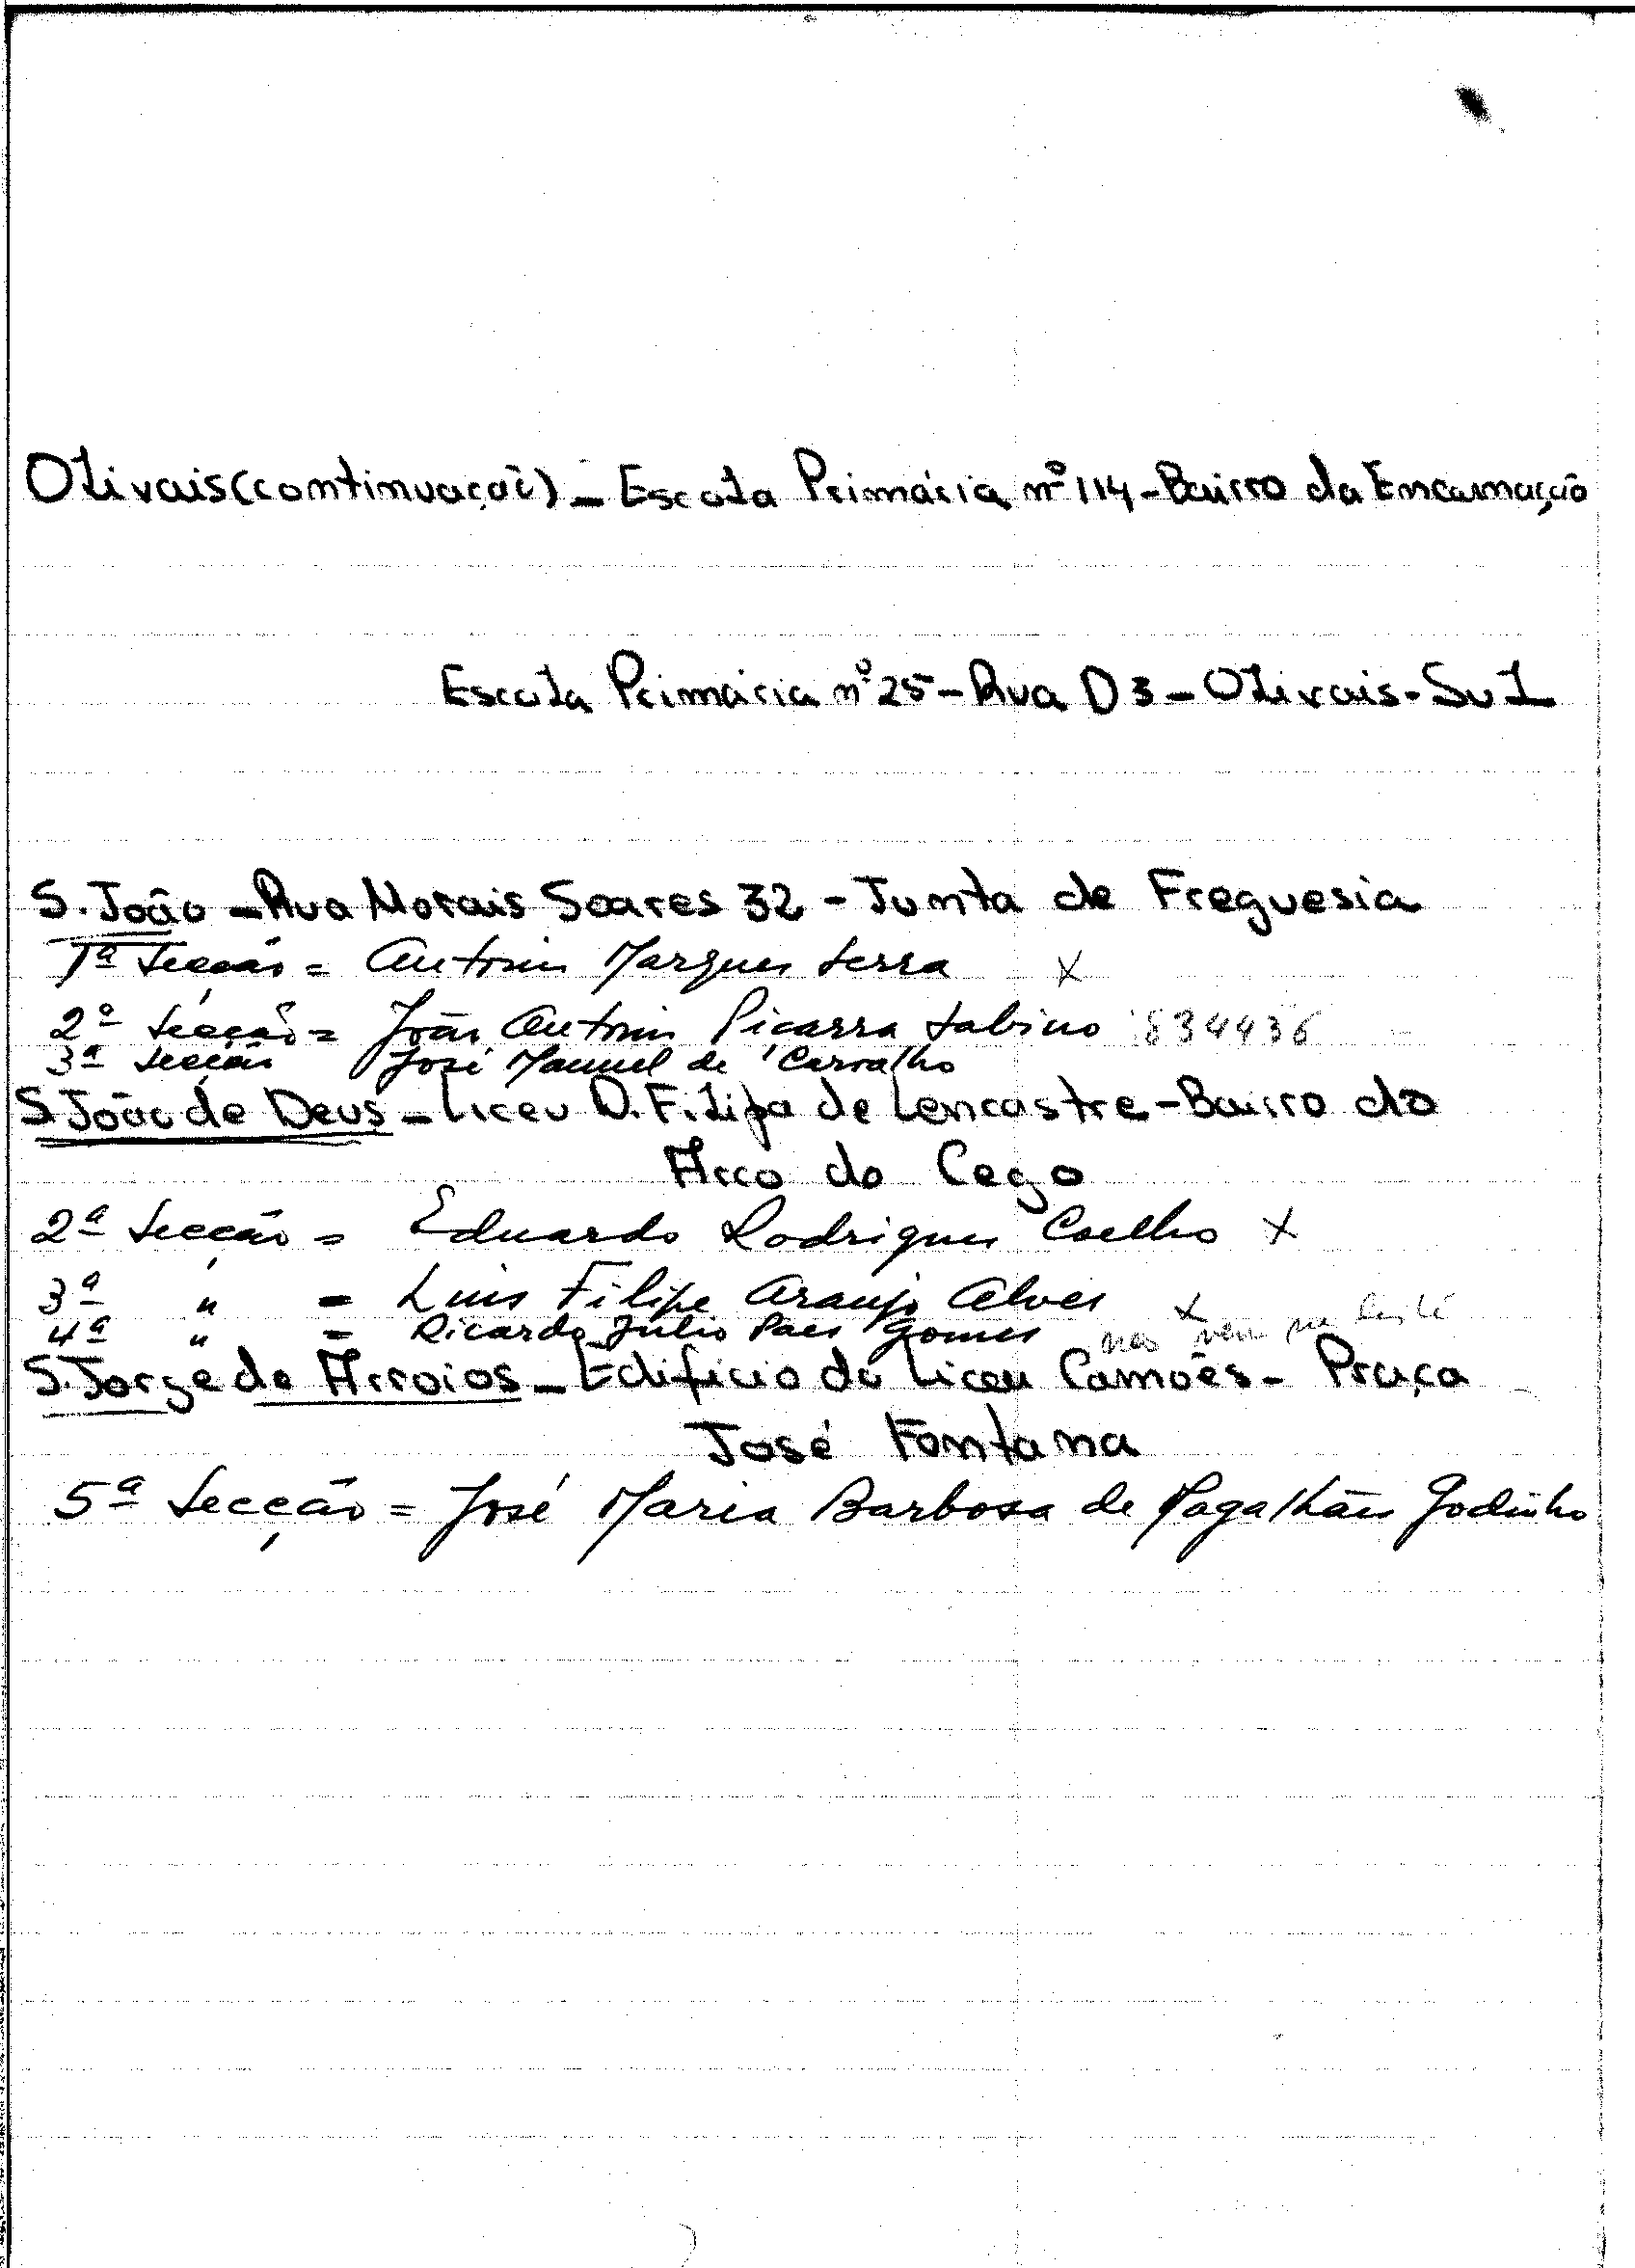 Olivais (continuação) - Escola Primária nº 114 - Bairro da Encarnação
Escola Primária nº 25 - Rua D3 - Olivais-Sul
S. João - Rua Morais Soares 32 - Junta de Freguesia
1ª Secção = António Marques Serra X
2ª Secção = João António Piçarra Sabino 834436
3ª Secção José Manuel de Carvalho
S João de Deus - Liceu D. Filipa de Lencastre - Bairro do
Arco do Cego
2ª Secção = Eduardo Rodrigues Coelho X
3ª " = Luis Filipe Araujo Alves X
4ª " = Ricardo Júlio Paes Gomes não vem na
S. Jorge de Arroios - Edifício do Liceu Camões - Praça
José Fontana
5ª Secção = José Maria Barbosa de Magalhães Godinho